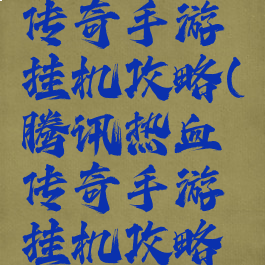 传奇手游
挂机攻略(
腾讯热血
传奇手游
挂机攻略